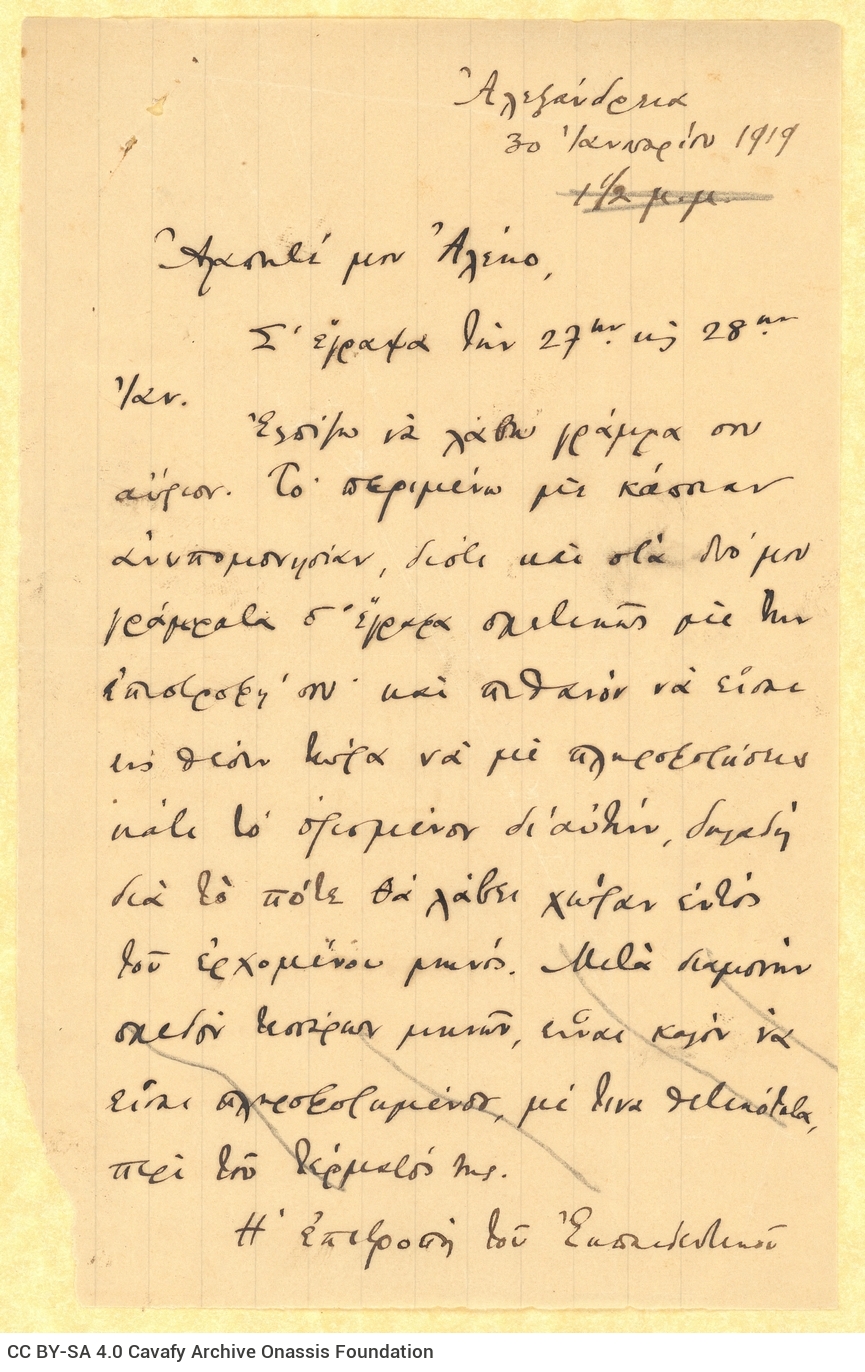 Ἀλεξάνδρεια
30 Ἰανουαρίου 1919
1 1/2 μ.μ.
Ἀγαπητέ μου Ἀλέκο,
Σ' ἔγραψα τὴν 27ην κ̀ς 28ην
Ἰαν.
Ἐλπίζω νὰ λάβω γράμμα σου
αὔριον. Τὸ περιμένω μὲ κάποιαν
ἀνυπομονησίαν, διότι καὶ στὰ δυό μου
γράμματα σ' ἔγραψα σχετικῶς μὲ τὴν
ἐπιστροφή σου· καὶ πιθανὸν νὰ εἶσαι
εἰς θέσιν τώρα νὰ μὲ πληροφορήσεις
κάτι τὸ ὁρισμένον δι' αὐτήν, δηλαδὴ
διὰ τὸ πότε θὰ λάβει χώραν ἐντὸς
τοῦ ἐρχομένου μηνός. Μετὰ διαμονὴν
σχεδὸν τεσσάρων μηνῶν, εἶναι καλὸν νὰ
εἶσαι πληροφορημένος, μέ τινα θετικότητα,
περὶ τοῦ τέρματός της.
Ἡ Ἐπιτροπὴ τοῦ Ἐκπαιδευτικοῦ
CC BY-SA 4.0 Cavafy Archive Onassis Foundation